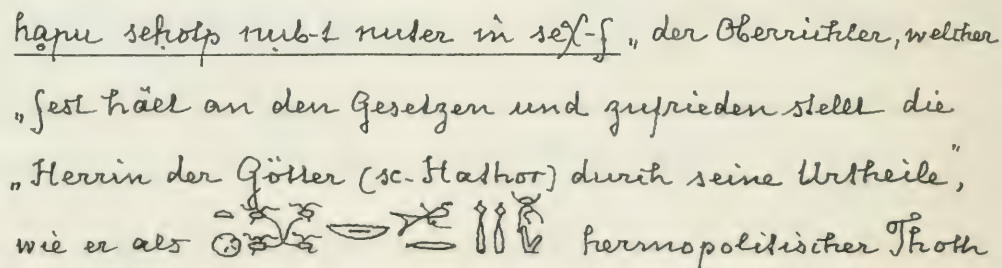 hapu seḥotp nub-t nuter in seχ-f „der Oberrichter, welcher
„fest hält an den Gesetzen und zufrieden stellt die
„Herrin der Götter (sc. Hathor) durch seine Urtheile",
wie er als hermopolitischer Thoth